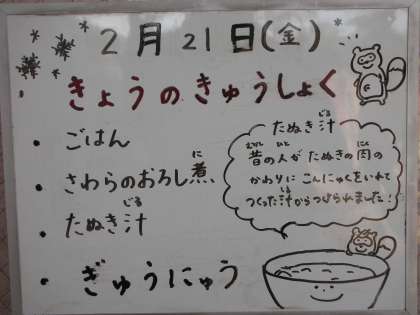 2月21日(金)
きょうのきゅうしょく
・ごはん
・さわらのおろし煮
に
・たぬき汁
じる
・ぎゅうにゅう
たぬき汁
じる
昔の人がたぬきの肉の
むかし ひと にく
かわりにこんにゃくをいれて
つくった汁からつけられました!
しる